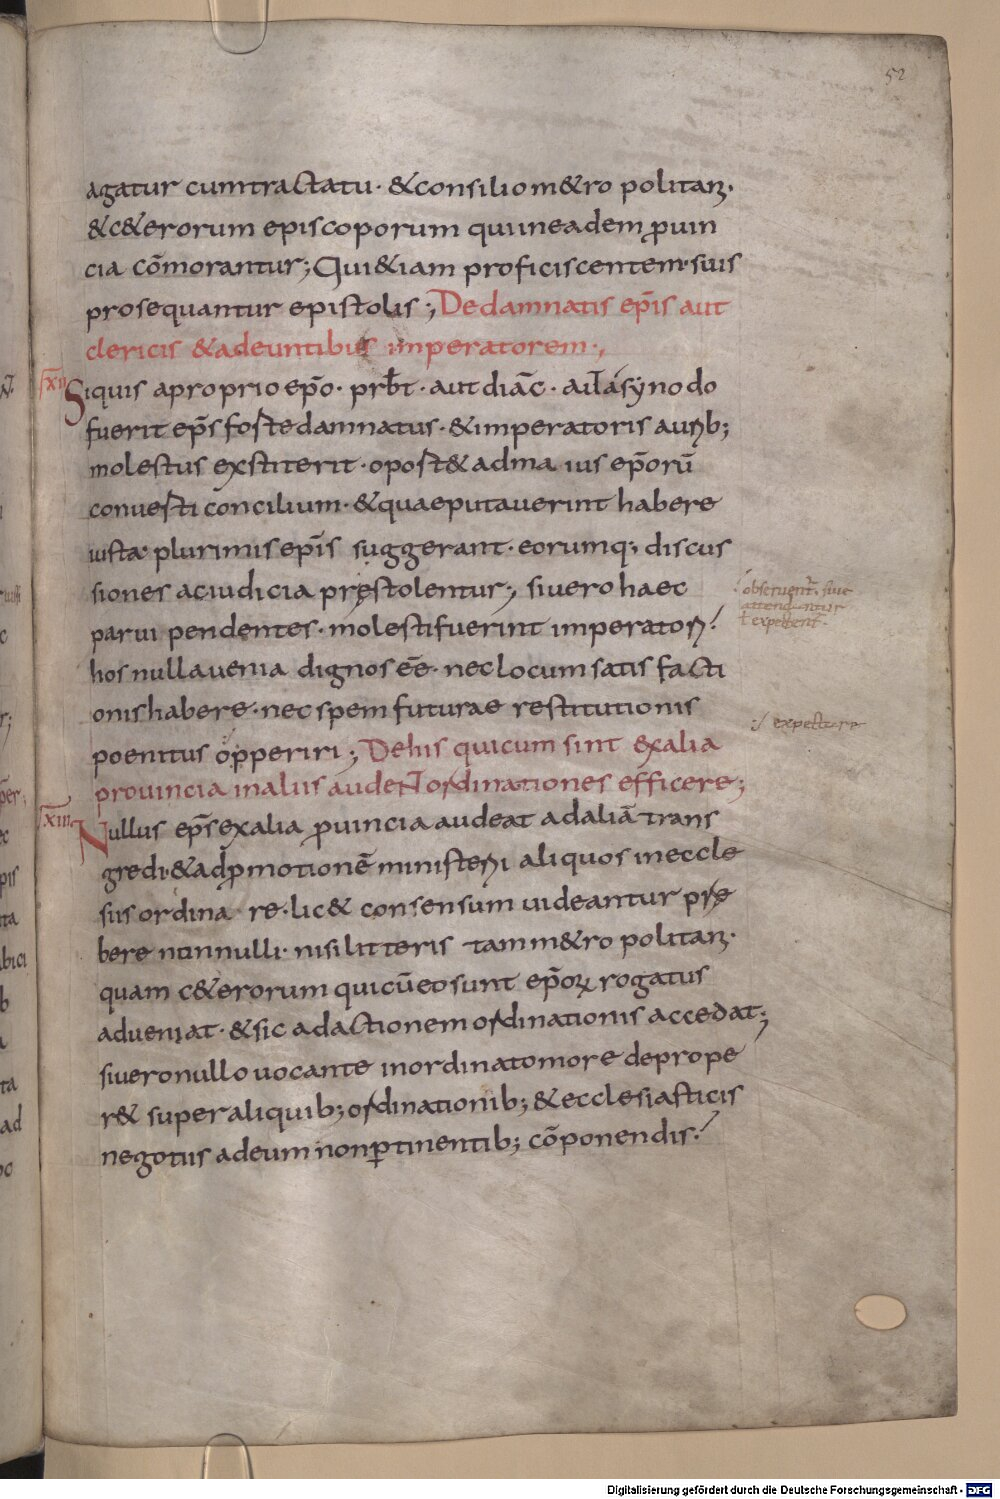 52
agatur cumtractatu· &consiliom&ro politaꝝ·
&c&erorum episcoporum quiineadem ꝓuin
cia cōmorantur; Qui&iam proficiscentem·suis
prosequantur epistolis; Dedamnatis ep̄is aut
clericis &adeuntibus imperatorem·,
XII Siquis aproprioep̄o· prb̄t· aut diāc· asynodo
fuerit ep̄s fostedamnatus· &imperatoris auꝝb;
molestus exstiterit· oport& adma ius ep̄orū
conuesti concilium· &quaeputauerint habere
iusta plurimisep̄is suggerant· eorumq; discus
siones aciudicia pręstolentur; siuero haec
parui pendentes· molestifuerint imperatoꝝ!
hos nullauenia dignos eē· neclocum satis facti
onishabere· nec spem futurae restitutionis
poenitus opperiri; Dehis quicum sint exalia
prouincia inaliis audeNt ordinationes efficere;
XIII Nullus ep̄sexalia ꝓuincia audeat adaliā trans
gredi·&adꝓmotionē ministerii aliquos ineccle
siis ordina re·lic& consensum uideantur prę
bere nonnulli· nisi litteris tam m&ro politaꝝ·
quam c&erorum quicūeosunt ep̄oꝝ rogatus
adueniat· &sic adactionem ordinationis accedat;
siueronullo uocante inordinatomore deprope
r& superaliquib; ordinationib; &ecclesiasticis
negotiis adeum nonꝑtinentib; cōponendis·!
obseruent̄· siue
attenduntur
ł expectent̄·
expectare
Digitalisierung gefördert durch die Deutsche Forschungsgemeinschaft - DFG